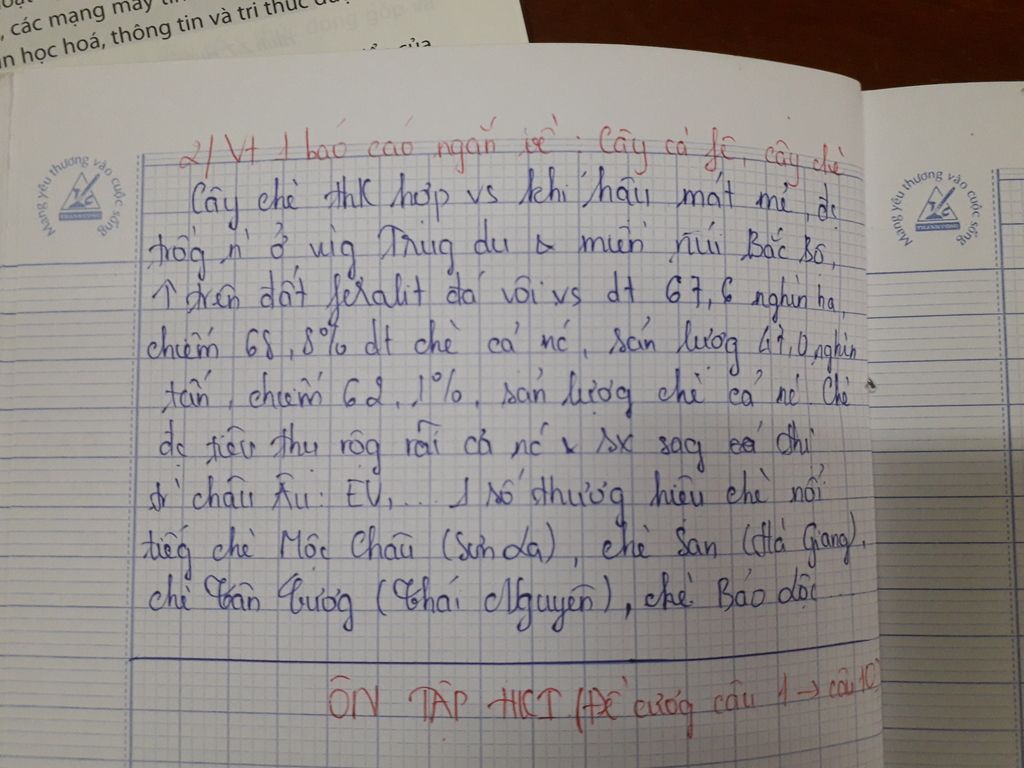 , các mạng máy
n học hoá, thông tin và tri thức
của
2/ Vt 1 báo cáo ngắn về: Cây cà fê, cây chè
Cây chè thk hợp vs khí hậu mát mẻ, đc
trồg n' ở vùg Trug du & miền núi Bắc Bộ,
↑ trên đất feralit đá vôi vs dt 67,6 nghìn ha,
chiếm 68,8% dt chè cả nc, sản lượg 47,0 nghìn
tấn, chiếm 62,1%, sản lượg chè cả nc Chè
đc tiêu thụ rộg rãi cả nc & sx sag cá thị
tr` châu Âu: EU,... 1 số thươg hiệu chè nổi
tiếg chè Mộc Châu (Sơn La), chè San (Hà Giang),
chè Tân Cươg (Thái Nguyên), chè Bảo Lộc
ÔN TẬP HKI (Đề cươg câu 1 → câu 10
Mang yêu thương vào cuộc sống
Mang yêu thương vào cuộc sống